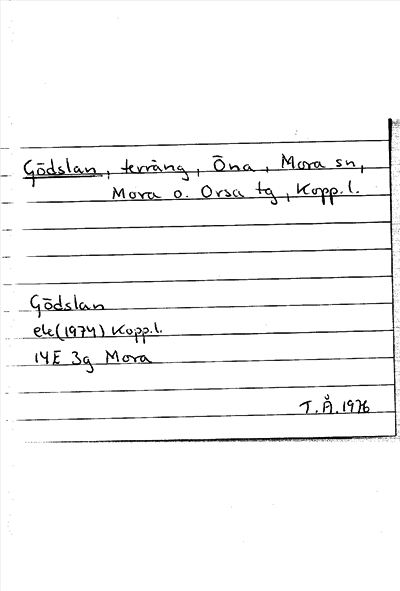 Gödslan, terräng, Öna, Mora sn,
Mora o. Orsa tg, Kopp.l.
Gödslan
ek(1974) Kopp.l.
14E 3g Mora
T.Å.1976